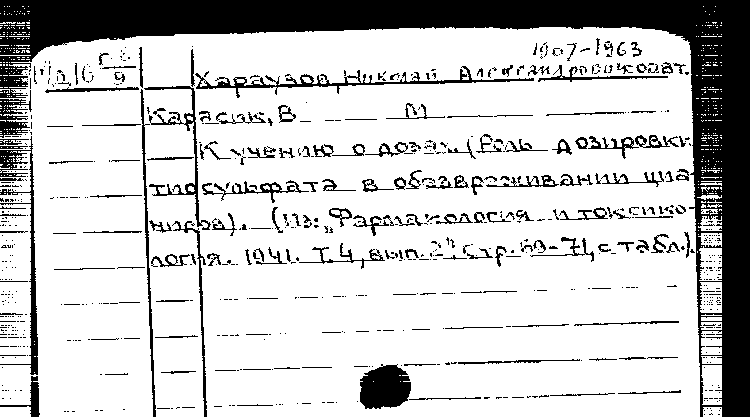 1907-1963
Харузов, Николай Александрович соавт.
Карасик, В М
К учению о дозах. (Роль дозировки
тиосульфата в обезвреживании циа-
нидов). (Из: „Фармакология и токсико-
логия. 1941. Т. 4, вып. 2", стр. 69-71, с табл.).